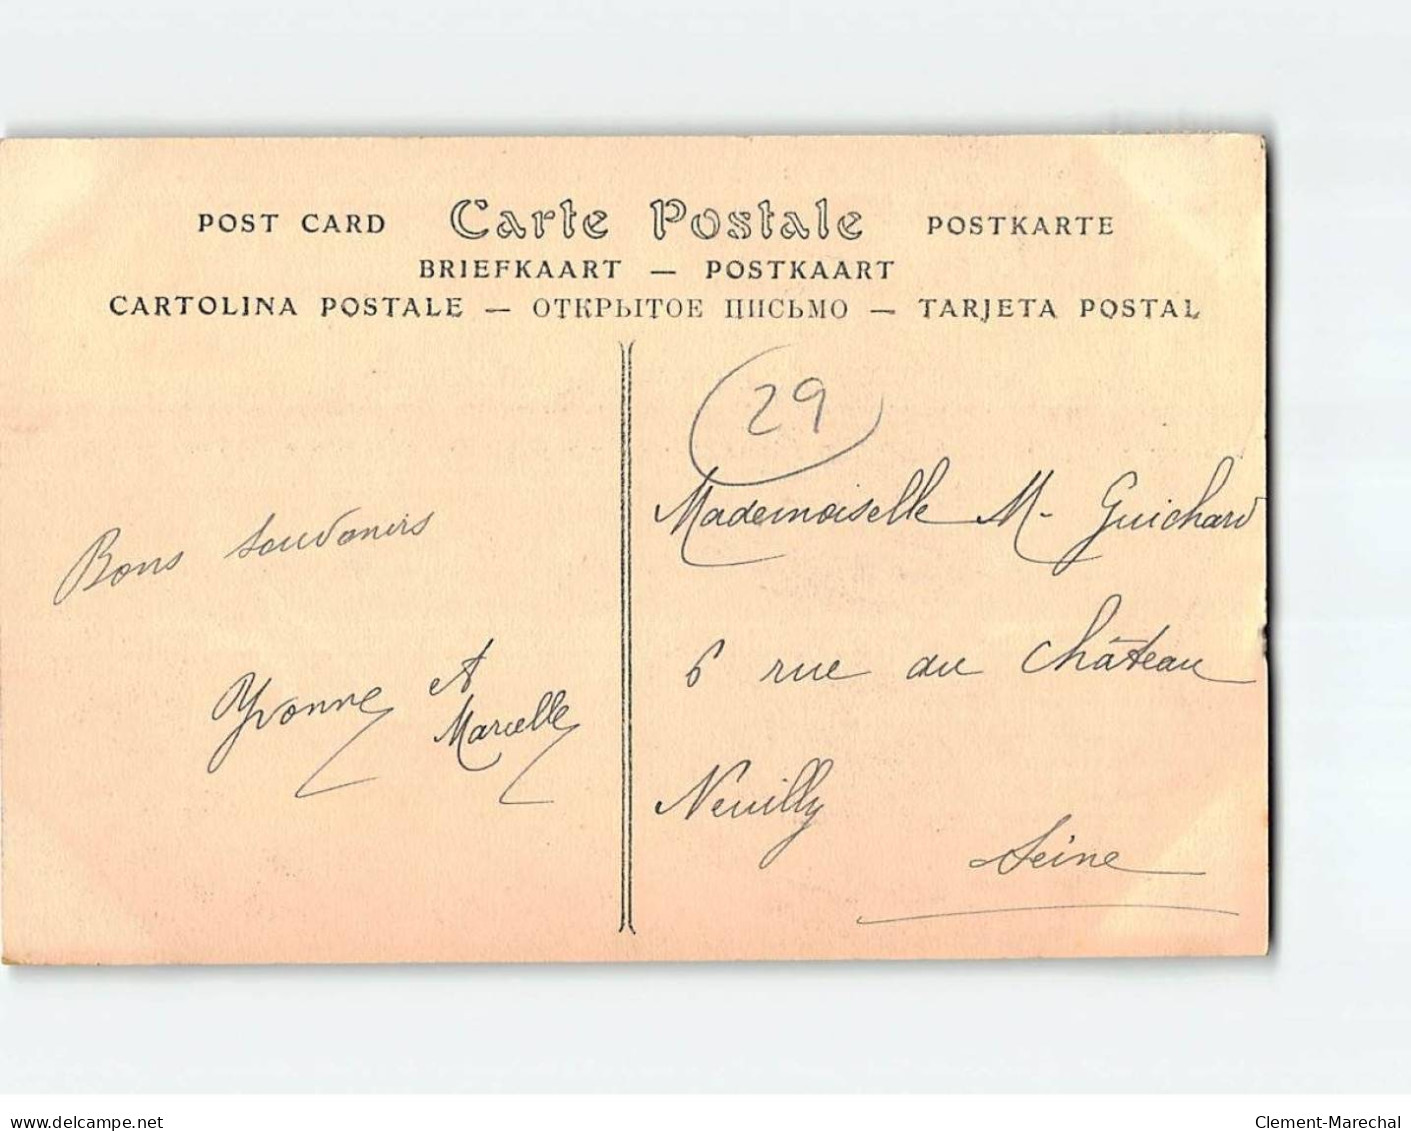 POST CARD Carte Postale POSTKARTE
BRIEFKAART — POSTKAART
CARTOLINA POSTALE — ОТКРЫТОЕ ПИСЬМО — TARJETA POSTAL
29
Bons souvenirs
Yvonne et
Marcelle
Mademoiselle M. Guichard
6 rue du Château
Neuilly
Seine
www.delcampe.net
Clement-Marechal